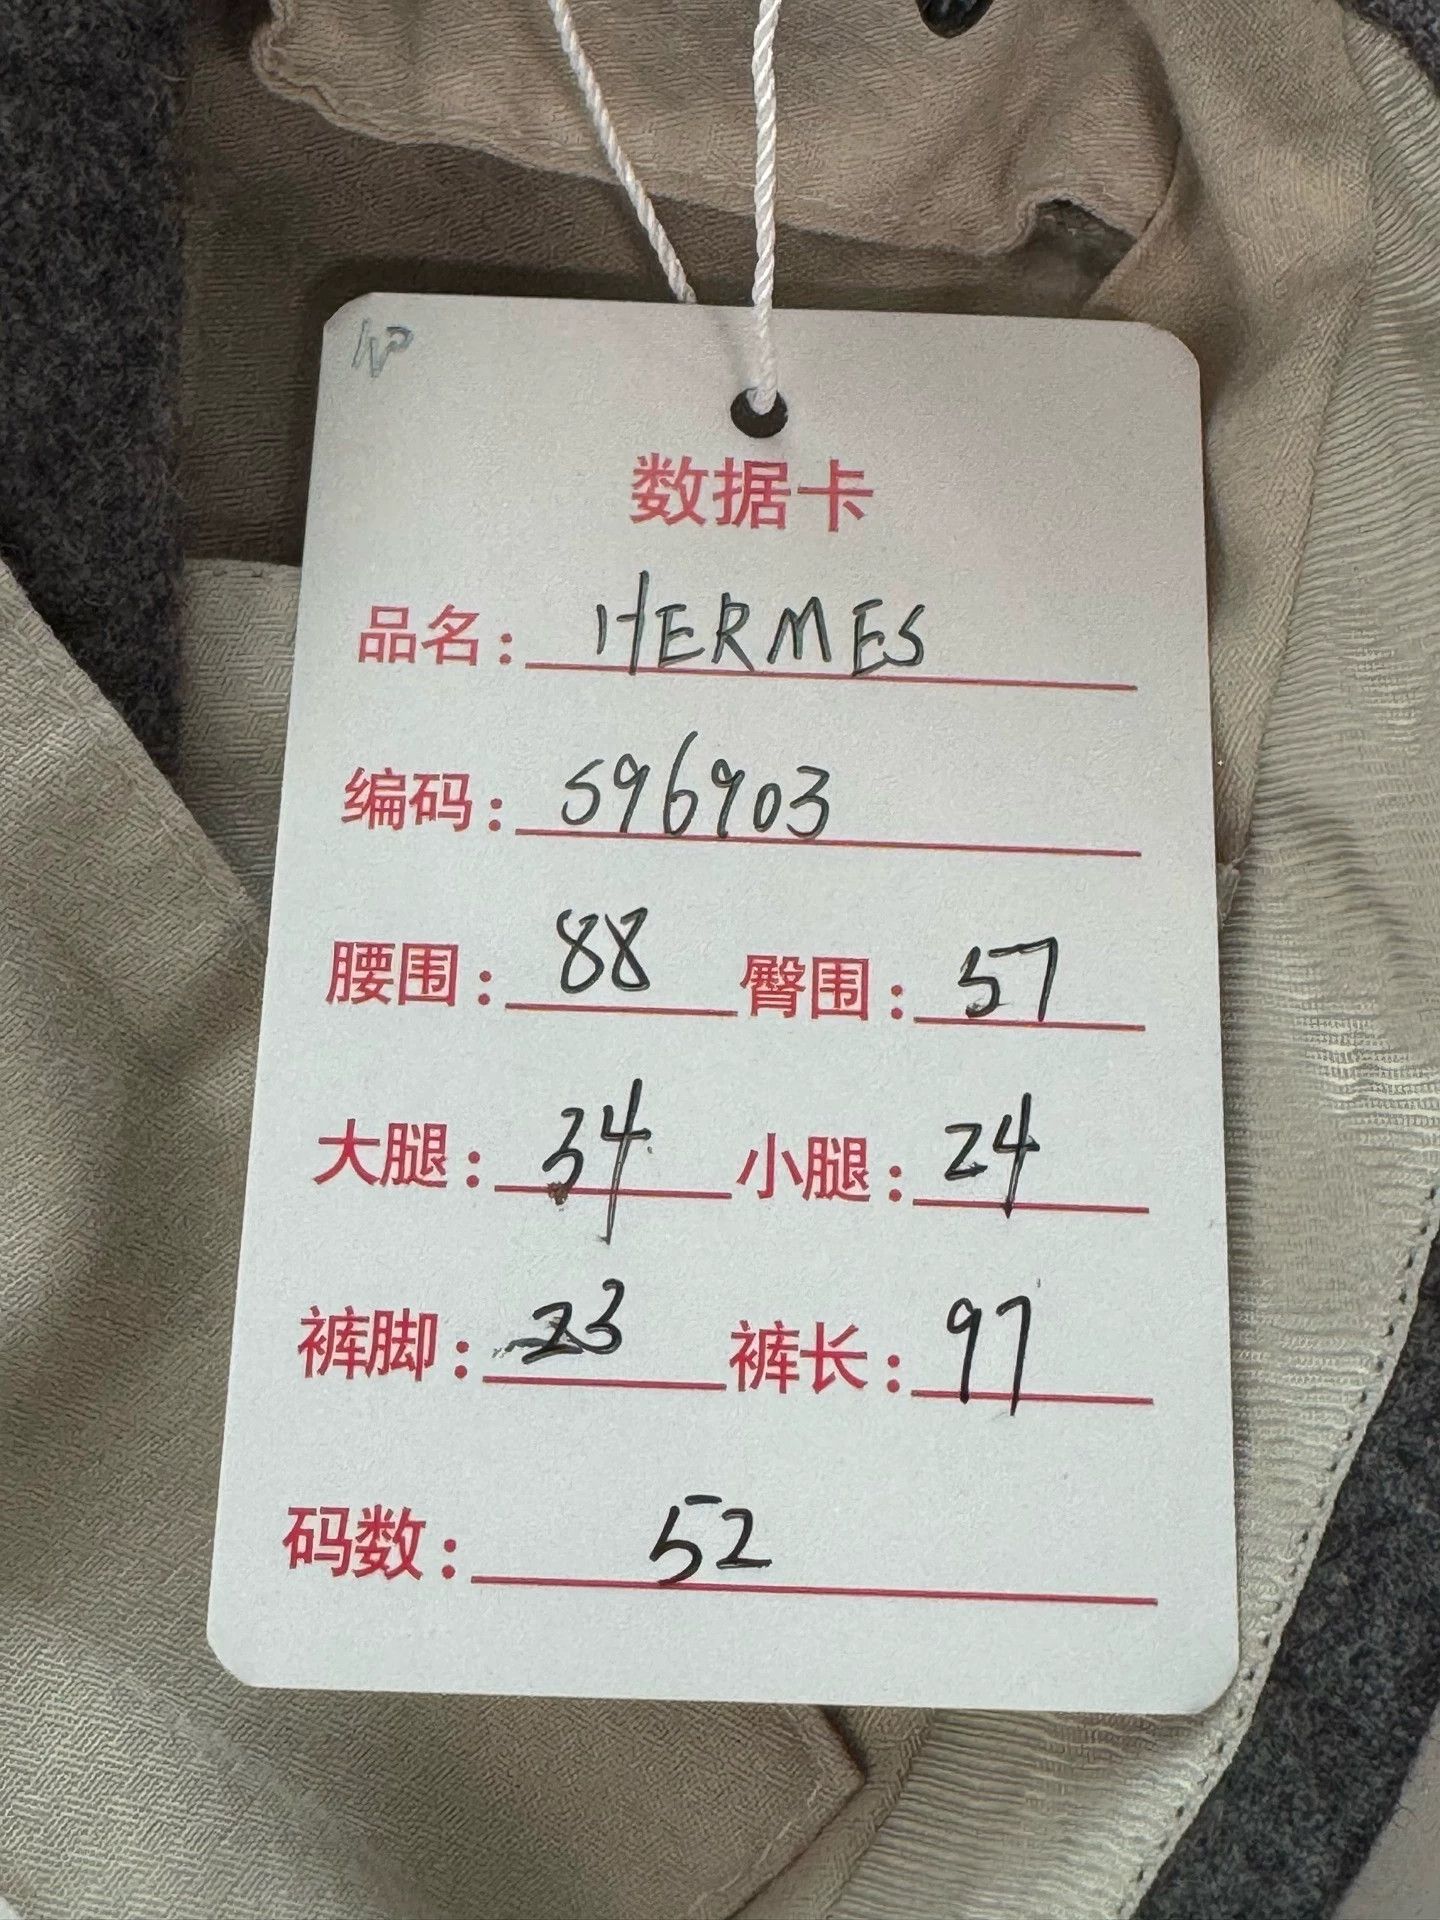 数据卡
品名: HERMES
编码: 596903
腰围: 88 臀围: 57
大腿: 34 小腿: 24
裤脚: 23 裤长: 97
码数: 52